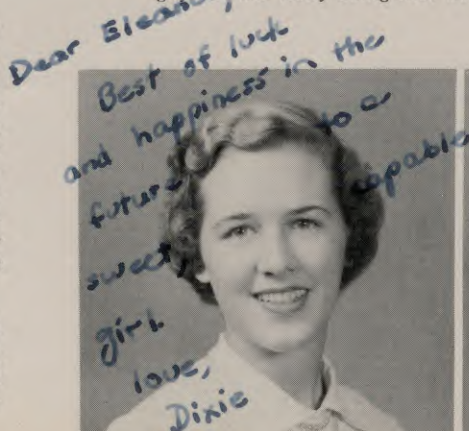 Dear Eleanor,
Best of luck
and happiness in the
future to a
sweet, capable
girl.
love,
Dixie